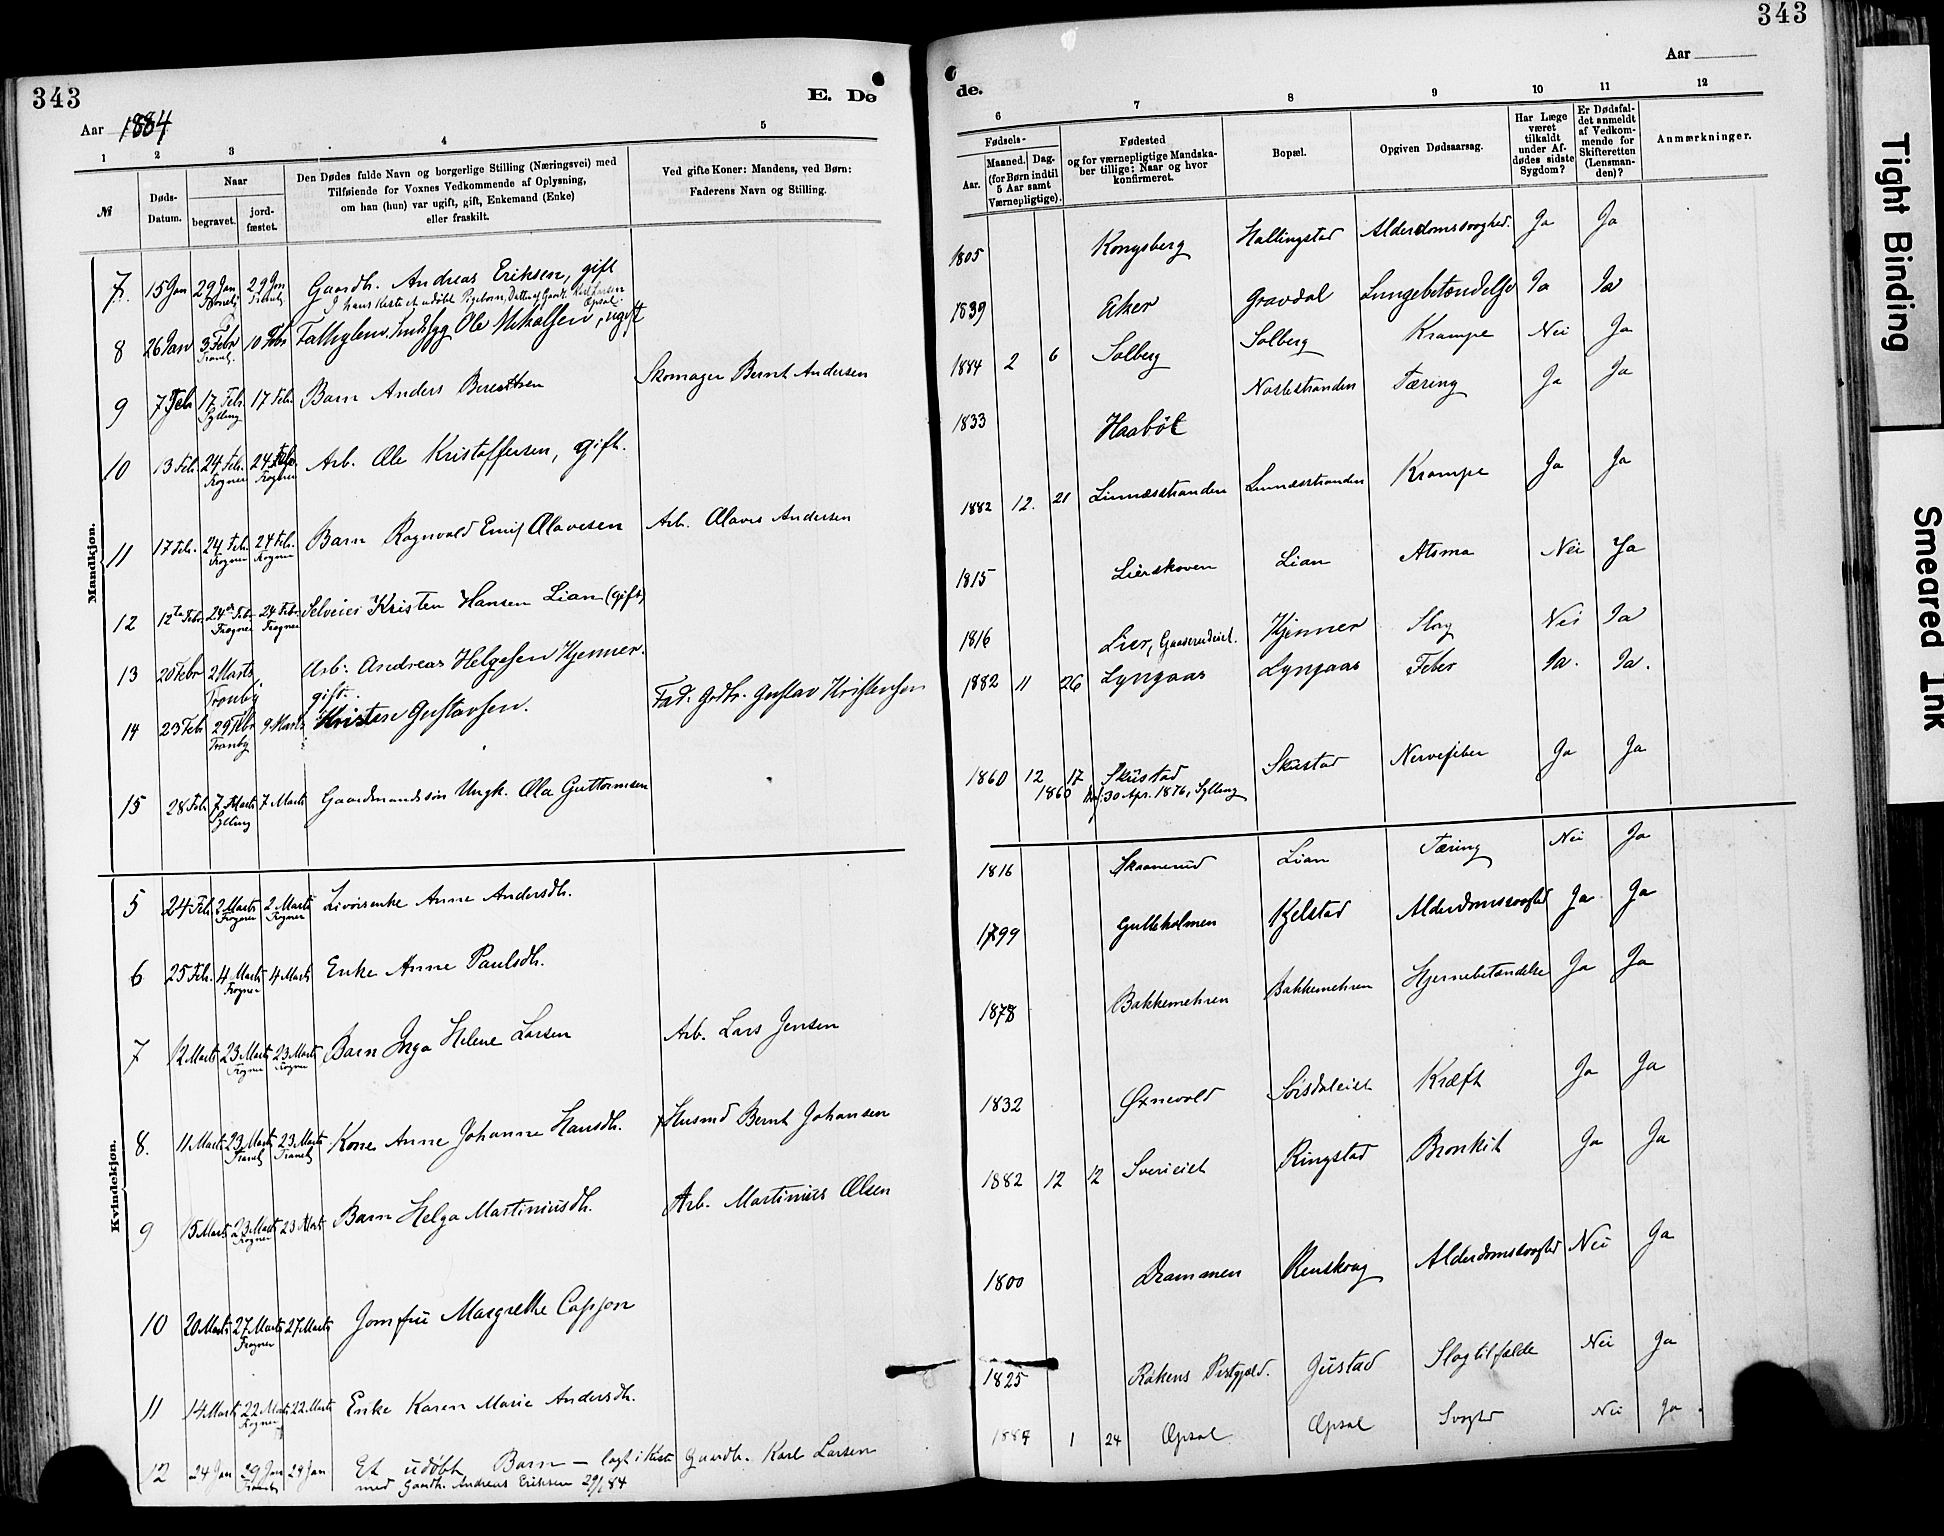 343
E. Dø
Aar 1884
1 2 3 4 5
№
Døds-Datum.
Naar
begravet.
jord-fæstet.
Den Dødes fulde Navn og borgerlige Stilling (Næringsvei) med
Tilføiende for Voxnes Vedkommende af Oplysning,
om han (hun) var ugift, gift, Enkemand (Enke)
eller fraskilt.
Ved gifte Koner: Mandens, ved Børn:
Faderens Navn og Stilling.
Mandkjøn.
7. 15 Jan 29 Jan Tranby 29 Jan Tranby Gaardb. Andreas Eriksen, gift
I hans Kiste et udöbt Pigebarn, Datter af Gaardb. Karl Larsen Opsal.
8 26 Jan 3 Febr Tranb. 10 Febr Ole Nikolsen, ugift
9 7 Feb 17 Feb. Sylling 17 Feb. Barn Anders Berentsen Skomager Bernt Andersen
10 13 Feb. 24 Feb. Frogner 24 Feb. Frogner Arb. Ole Kristoffersen, gift.
11 17 Feb. 24 Feb. Frogner 24 Feb. Frogner Barn Ragnvald Emil Olavesen Arb. Olaves Andersen
12 12te Febr 24de Febr Frogner 24 Febr Frogner Selveier Kristen Hansen Lian (gift)
13 20 Febr 2 Marts Tranby Arb: Andreas Helgesen Kjenner.
gift.
14 23 Feb 29 Febr Tranby 9 Marts Kristen Gustavsen. Fad. Grdbr. Gustav Kristensen
15 28 Feb. 7 Marts Sylling 7 Marts Gaardmandssön Ungk. Ole Guttormsen
Kvindekjøn.
5 24 Feb. 2 Marts Frogner 2 Marts Frogner Anne Andersdh.
6 25 Feb. 4 Marts Frogner 4 Marts Enke Anne Paulsdh.
7 12 Marts 23 Marts Frogner 23 Marts Frogner Barn Inga Helene Larsen Arb. Lars Jensen
8. 11 Marts 23 Marts Tranby 23 Marts Tranby Kone Anne Johanne Hansdh. Husmd Bernt Johansen
9 15 Marts 23 Marts Frogner 23 Marts Barn Helga Martiniusdh. Arb. Martinius Olsen
10 20 Marts 27 Marts Frogner 27 Marts Jomfru Margrethe Cappon
11 14 Marts 22 Marts Frogner 22 Marts Enke Karen Marie Andersdh.
12 24 Jan 29 Jan Tranby 29 Jan Et udöbt Barn – lagt i Kiste Gaardb. Karl Larsen
med Gaardb. Andreas Eriksen 29/1 84
343
Aar
de.
6 7 8 9 10 11 12
Fødsels-
Aar.
Maaned.
Dag.
(for Børn indtil
5 Aar samt
Værnepligtige).
Fødested
og for værnepligtige Mandska-
ber tillige: Naar og hvor
konfirmeret.
Bopæl.
Opgiven Dødsaarsag.
Har Læge
været
tilkaldt
under Af-
dødes sidste
Sygdom?
Er Dødsfal-
det anmeldt
af Vedkom-
mende for
Skifteretten
(Lensman-
den)?
Anmærkninger.
1805 Kongsberg Hallingstad Alderdomssvaghed. Ja Ja
1839 Eker Gravdal Lungebetændelse Ja Ja
1884 2 6 Solberg Solberg Krampe Nei Ja
1833 Haaböl Nostestranden Tæring Ja Ja
1882 12. 21 Linnæsstranden Linnæsstranden Krampe Ja Ja
1815 Lierskoven Lian Atsma Nei Ja
1816 Lier, Gaaserudeiet. Kjenner Slag Nei Ja
1882 11 26 Lyngaas Lyngaas Feber Ja. Ja.
1860 12 17 Skustad Skustad Nervefeber Ja Ja
1860 30 Apr. 1876, Sylling
1816 Skaanerud Lian Tæring Nei Ja
1799 Gulleholmen Kjelstad Alderdomssvaghed Ja Ja
1878 Bakkemehren Bakkemehren Hjernebetændelse Ja Ja
1832 Oxnevald Sörsdaleiet Kræft Ja Ja
1882 12 12 Svereiet Ringstad Bronkit Ja Ja
1800 Drammen Renskoug Alderdomssvaghed Nei Ja
1825 Rökens Præstgjeld. Justad Slagtilfælde Nei Ja
1884 1 24 Opsal Opsal Svaghd Nei Ja.
Tight Binding
Smeared Ink